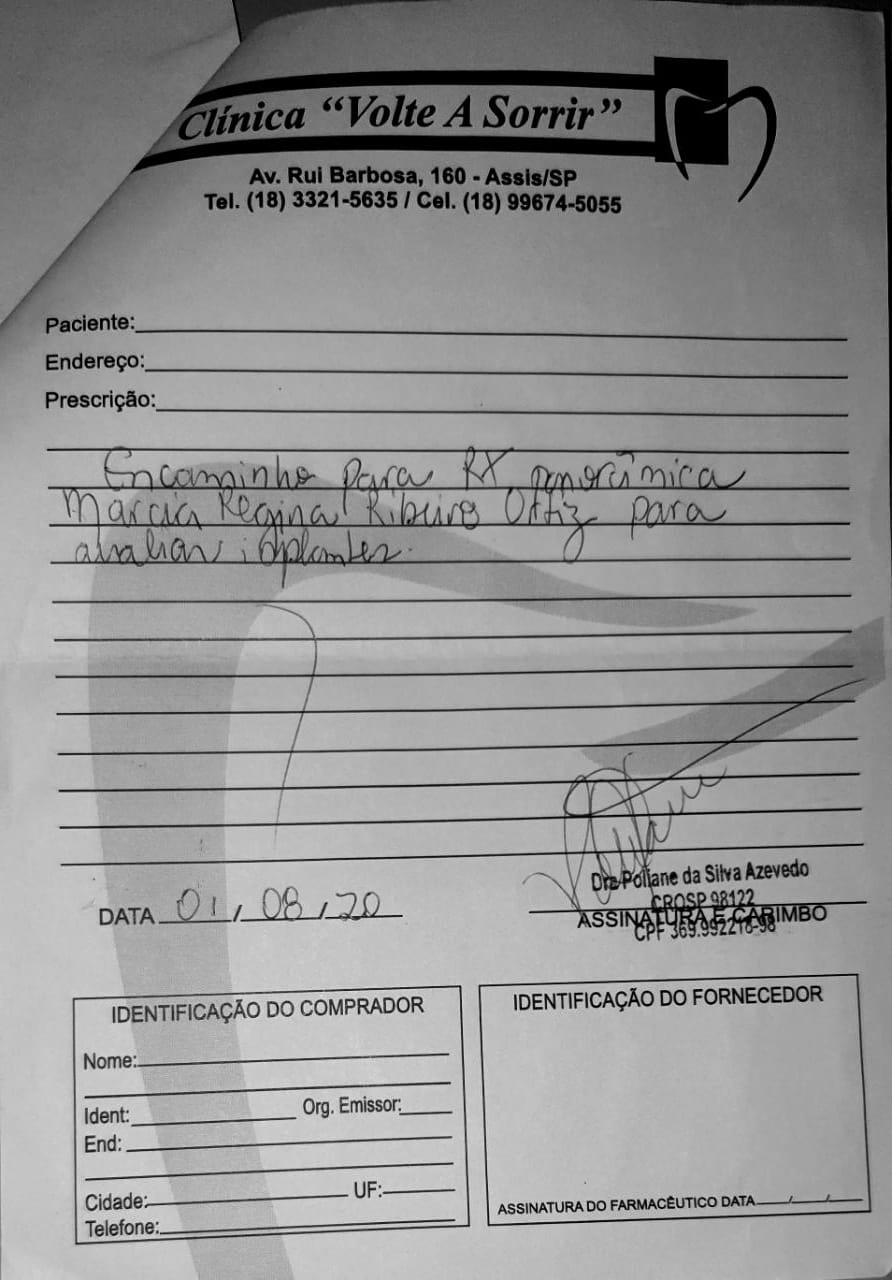 Clínica “Volte A Sorrir”
Av. Rui Barbosa, 160 - Assis/SP
Tel. (18) 3321-5635 / Cel. (18) 99674-5055
Paciente:
Endereço:
Prescrição:
Encaminho para RX panorâmica
Marcia Regina Ribeiro Ortiz para
avaliar implantes.
DATA 01/08/20
Dra Poliane da Silva Azevedo
CROSP 98122
ASSINATURA E CARIMBO
CPF 369.992218-98
IDENTIFICAÇÃO DO COMPRADOR
Nome:
Ident: Org. Emissor:
End:
Cidade: UF:
Telefone:
IDENTIFICAÇÃO DO FORNECEDOR
ASSINATURA DO FARMACÊUTICO DATA / /